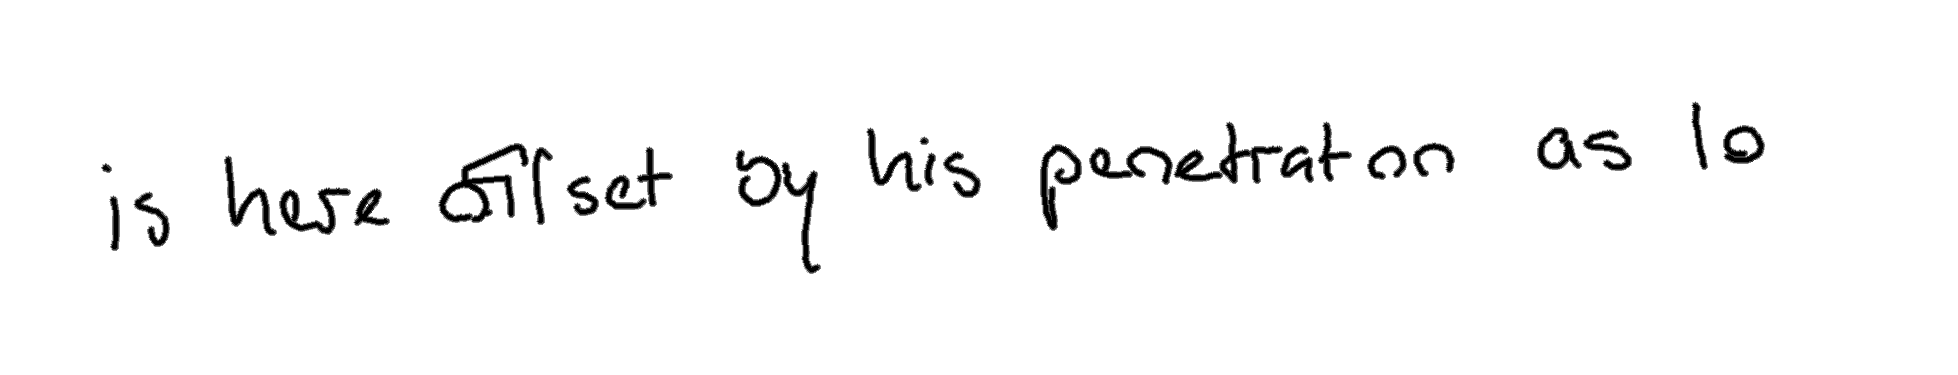 is here offset by his penetration as to